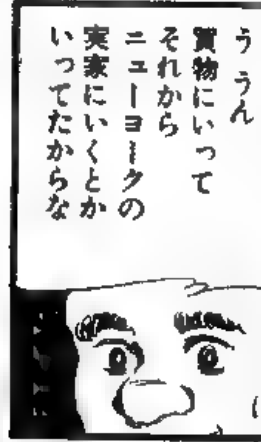 う うん
買物にいって
それから
ニューヨークの
実家にいくとか
いってたからな